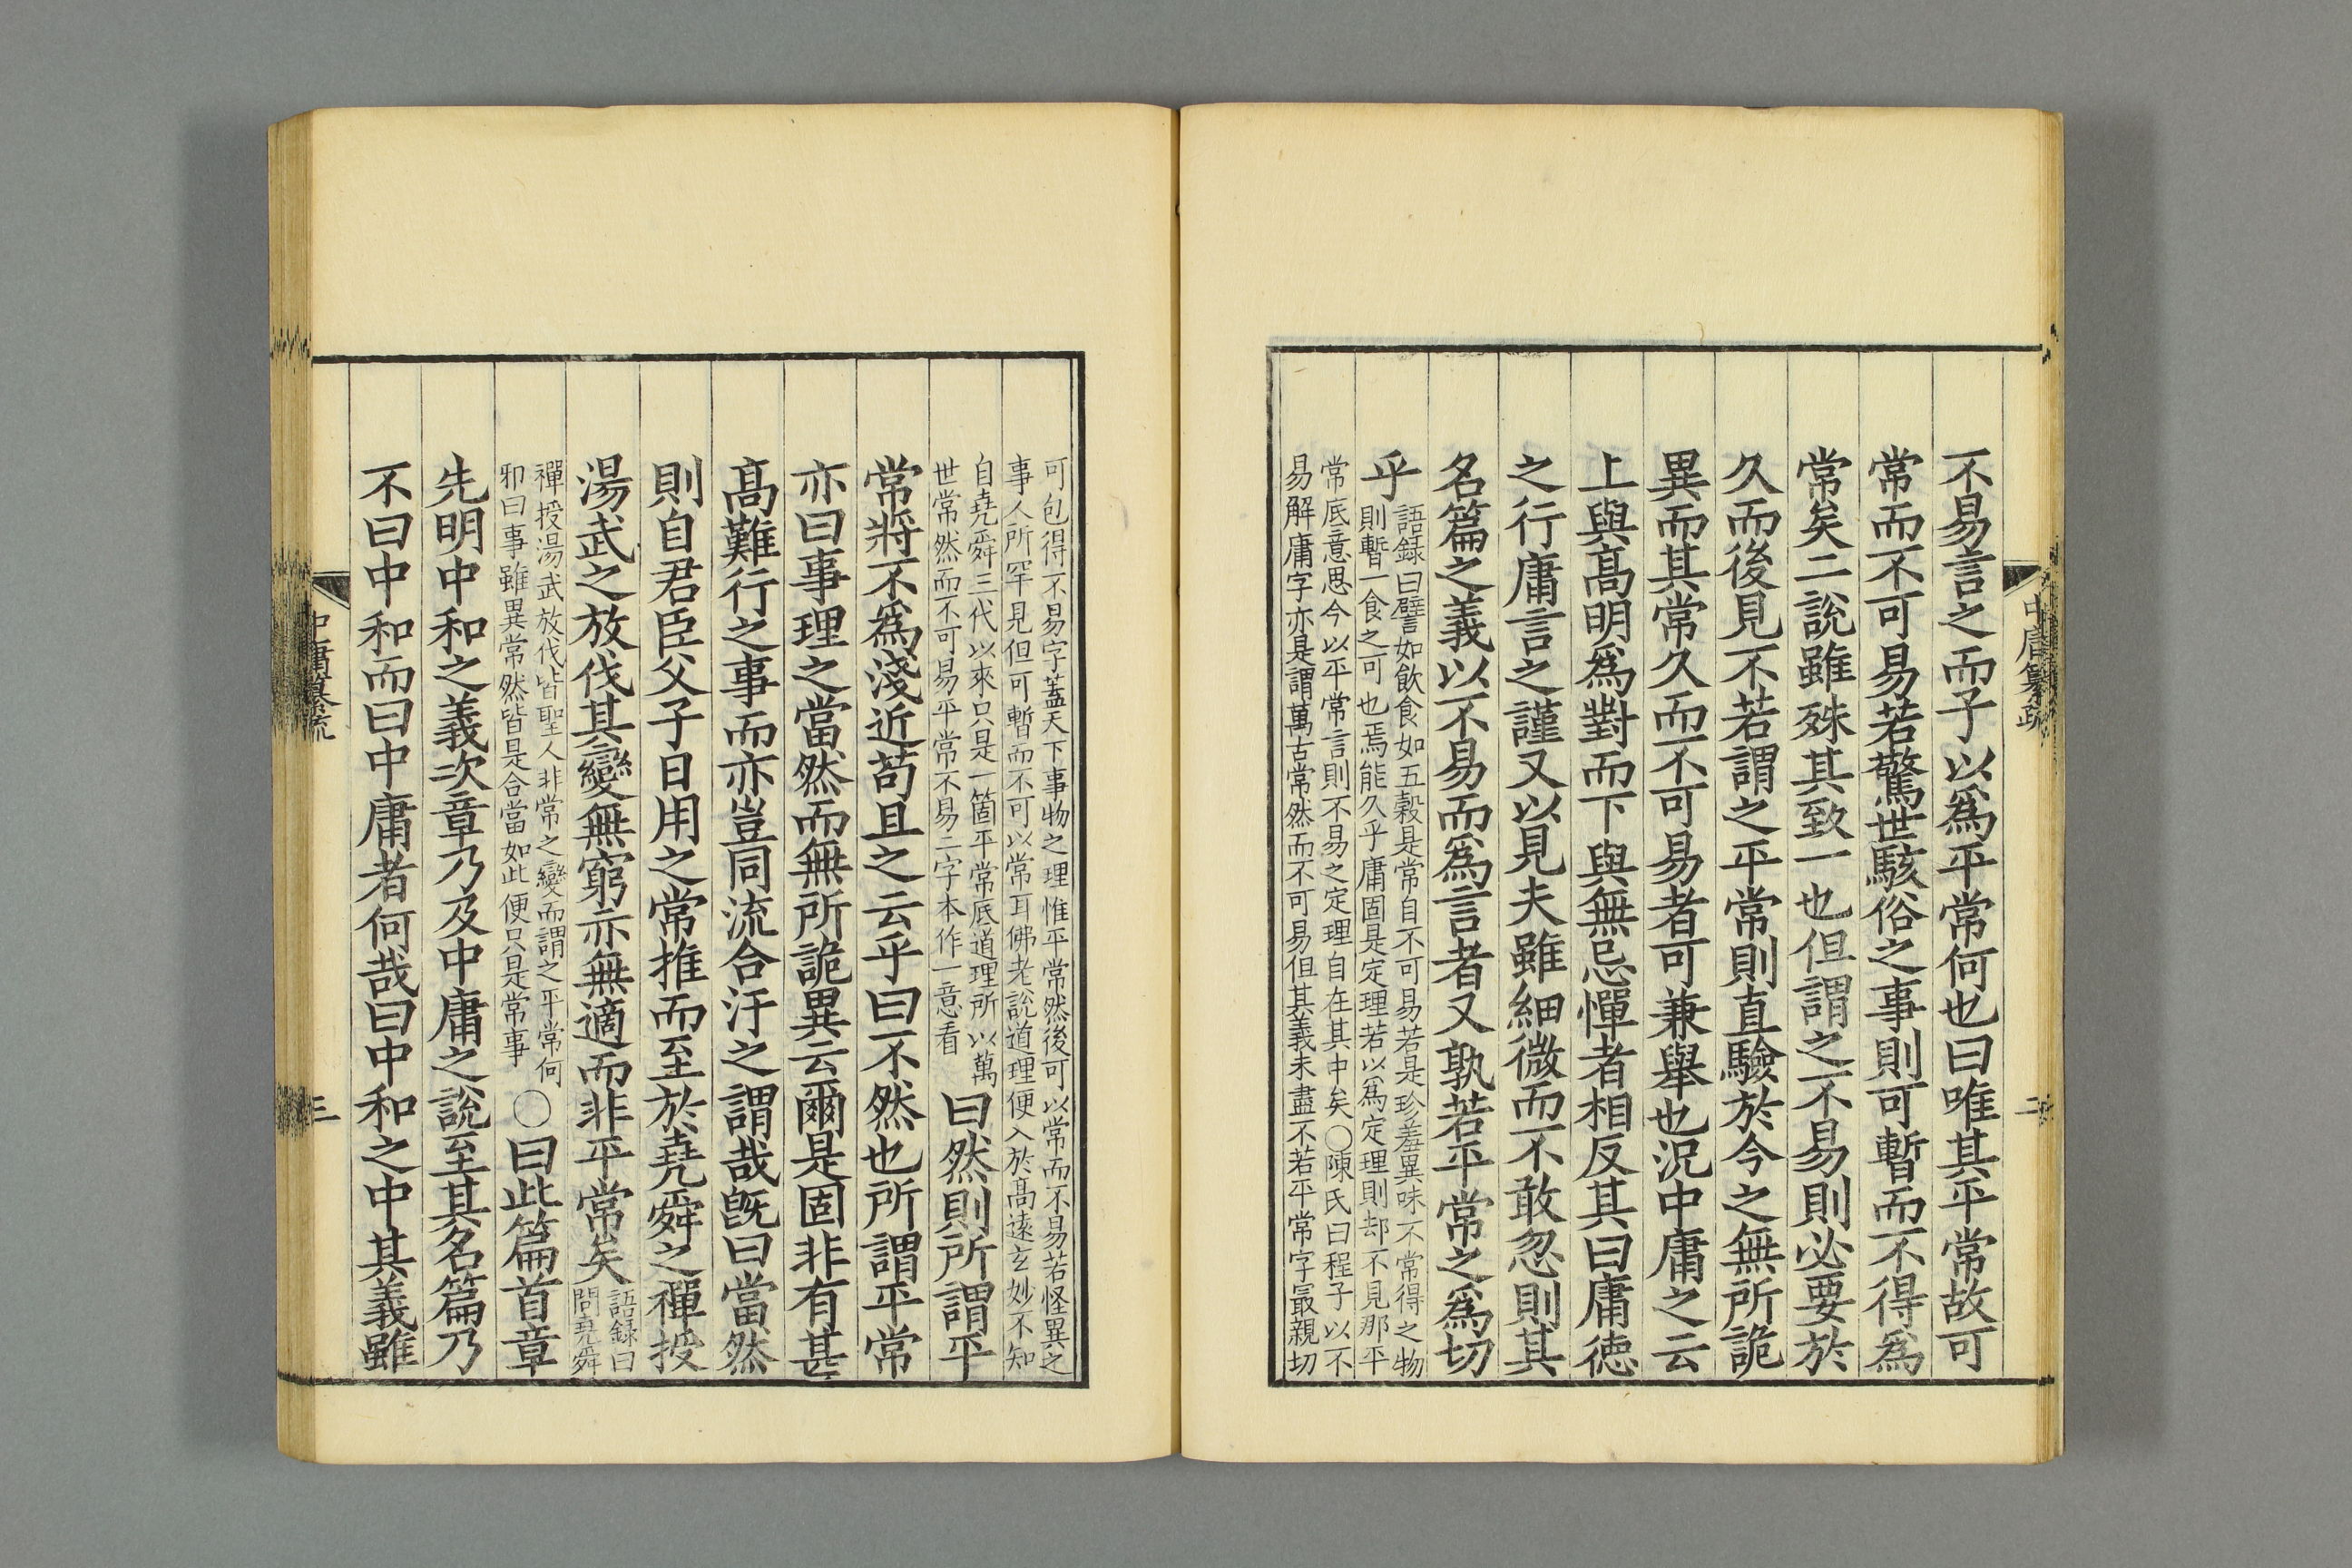 不易言之而子以爲平常何也曰唯其平常故可
常而不可易若驚世駭俗之事則可暫而不得爲
常矣二說雖殊其致一也但謂之不易則必要於
久而後見不若謂之平常則直驗於今之無所詭
異而其常久而不可易者可兼舉也況中庸之云
上與高明爲對而下與無忌憚者相反其曰庸德
之行庸言之謹又以見夫雖細微而不敢忽則其
名篇之義以不易而爲言者又孰若平常之爲切
乎
語録曰譬如飲食如五穀是常自不可易若是珍羞異味不常得之物
則暫一食之可也焉能久乎庸固是定理若以爲定理則却不見那平
常底意思今以平常言則不易之定理自在其中矣○陳氏曰程子以不
易解庸字亦是謂萬古常然而不可易但其義未盡不若平常字最親切
中庸纂疏
二
可包得不易字蓋天下事物之理惟平常然後可以常而不易若怪異之
事人所罕見但可暫而不可以常耳佛老說道理便入於高遠玄妙不知
自堯舜三代以來只是一箇平常底道理所以萬
世常然而不可易平常不易二字本作一意看
曰然則所謂平
常將不爲淺近苟且之云乎曰不然也所謂平常
亦曰事理之當然而無所詭異云爾是固非有甚
高難行之事而亦豈同流合汙之謂哉旣曰當然
則自君臣父子日用之常推而至於堯舜之禪授
湯武之放伐其變無窮亦無適而非平常矣
語録曰
問堯舜
禪授湯武放伐皆聖人非常之變而謂之平常何
邪曰事雖異常然皆是合當如此便只是常事
○曰此篇首章
先明中和之義次章乃及中庸之說至其名篇乃
不曰中和而曰中庸者何哉曰中和之中其義雖
中庸纂疏
三